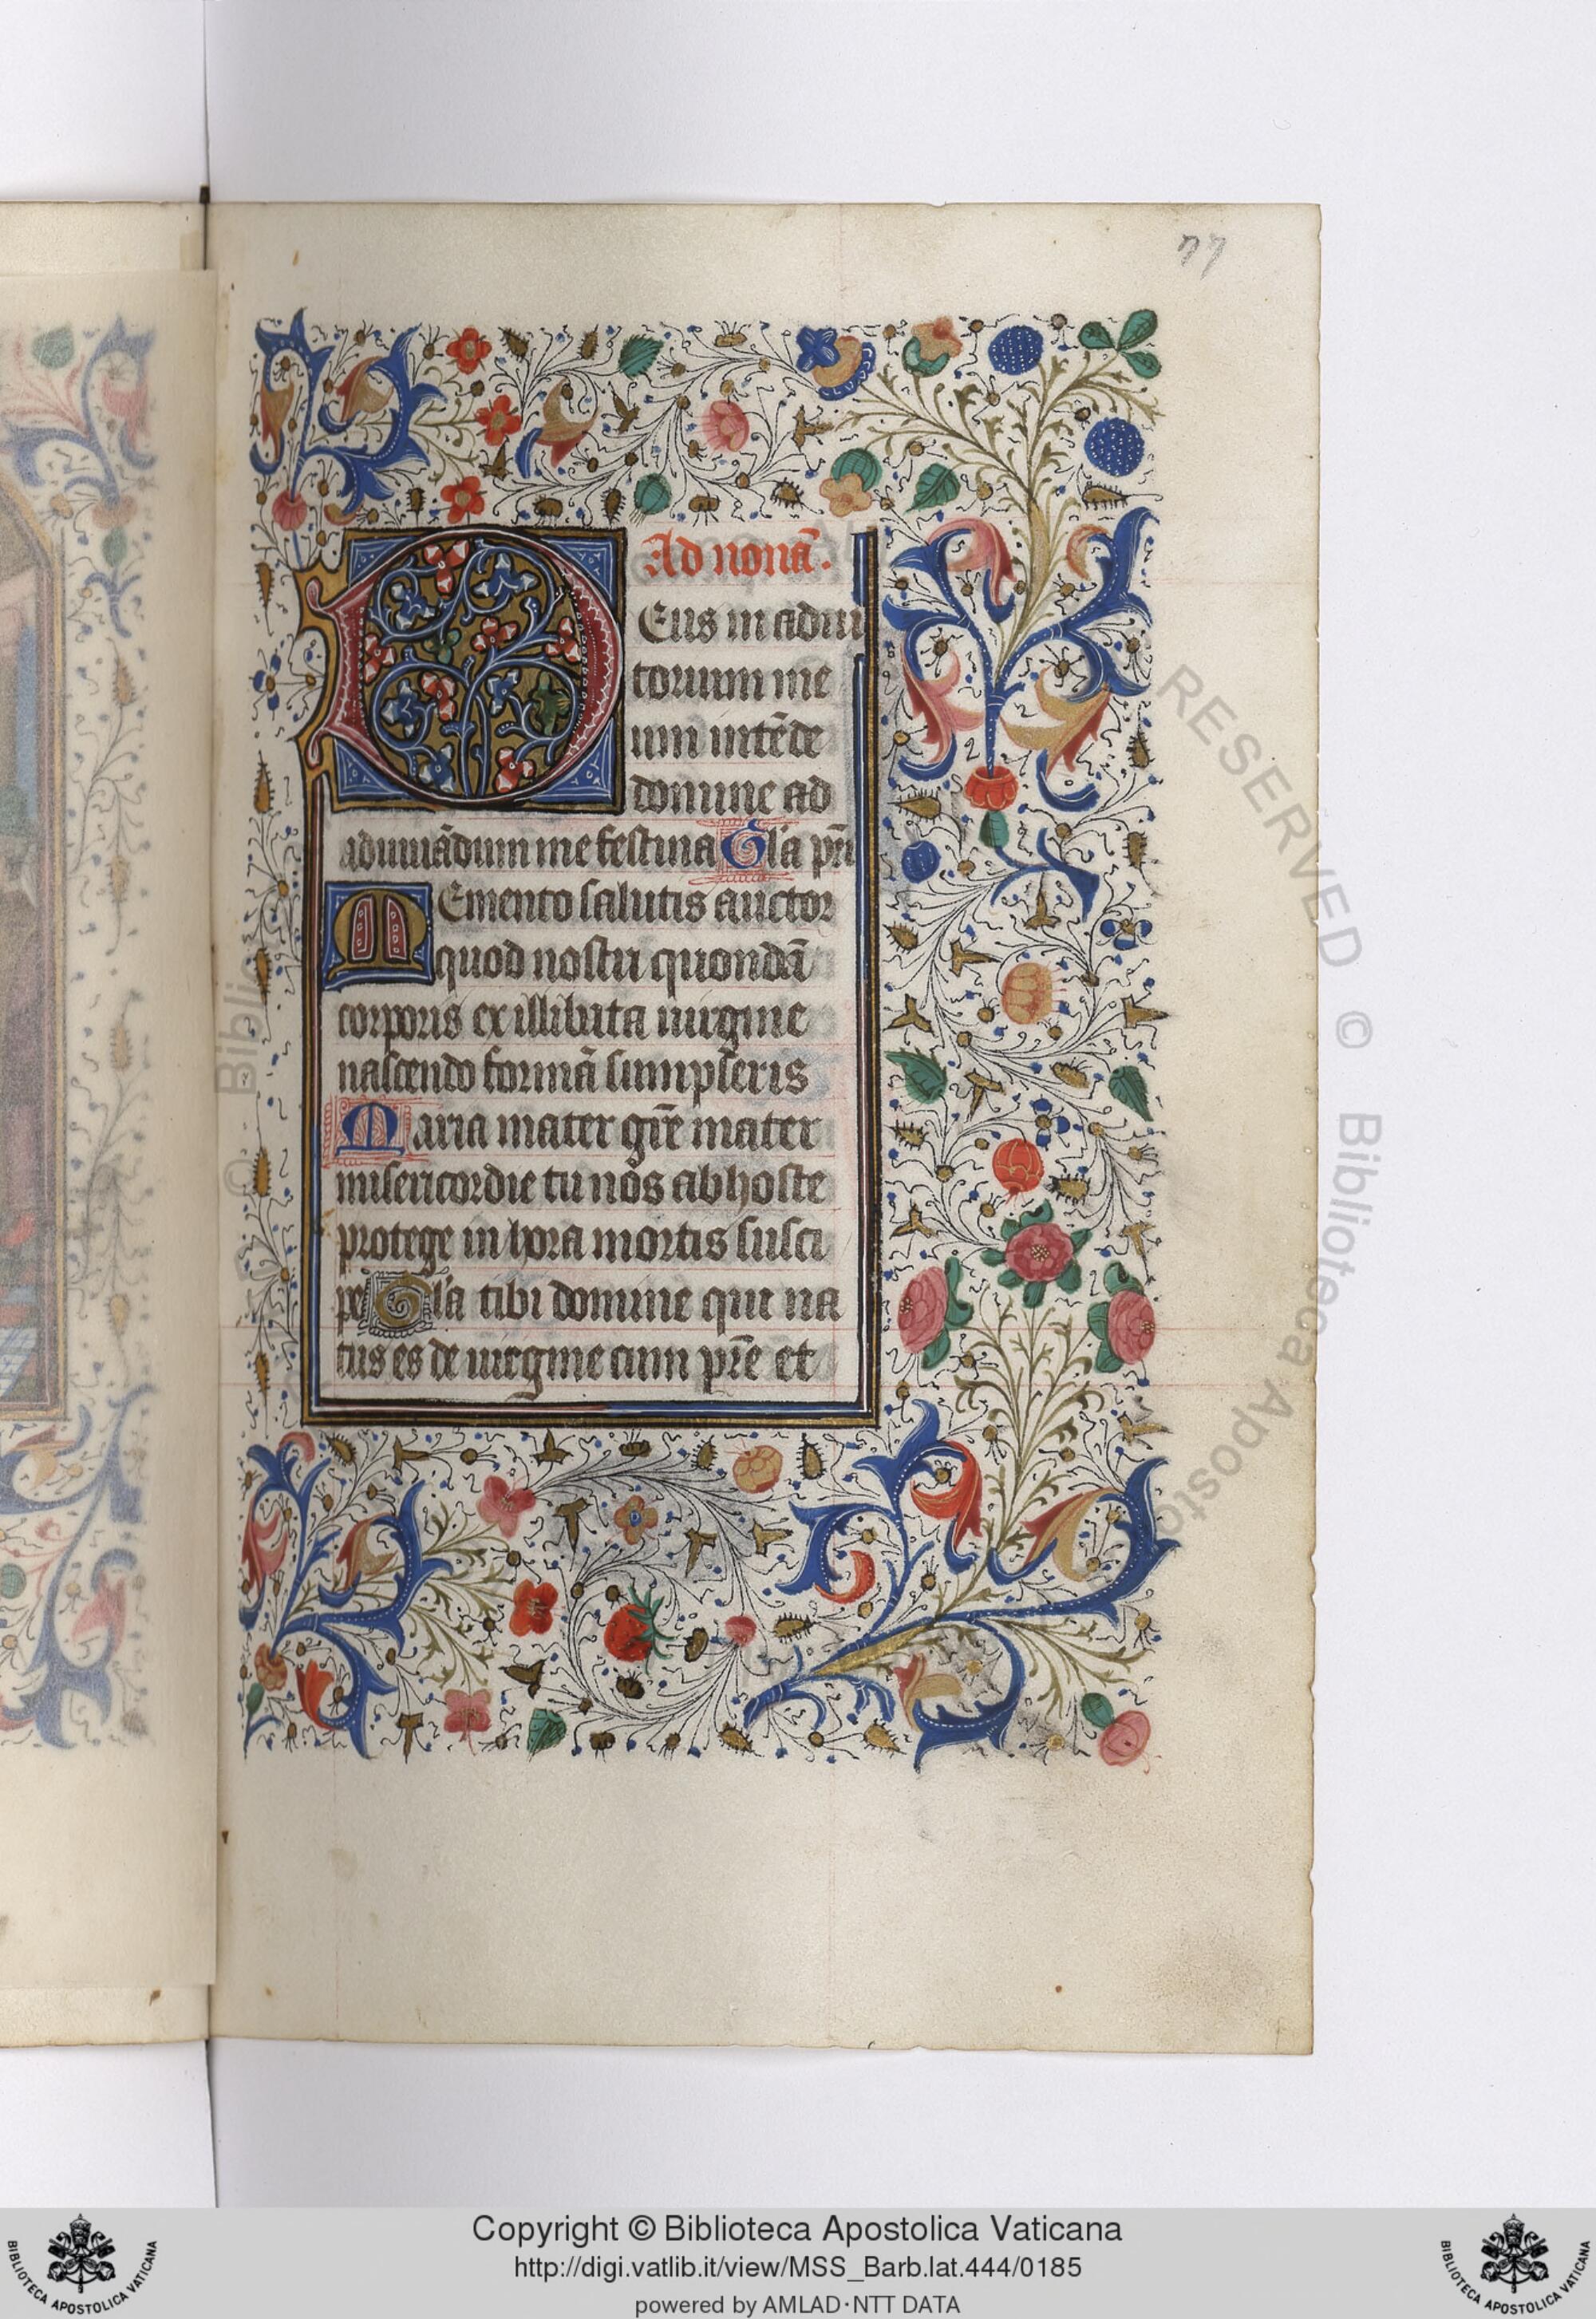 77
Ad nonā.
DEus in adiu
torium me
um intēde
domine ad
adiuuādum me festina Gl'a pr̄i
MEmento salutis auctor
quod nostri quondā
corporis ex illibata uirgine
nascendo formā sumpseris
Maria mater gr̄e mater
misericordie tu nos ab hoste
protege in hora mortis susci
pe Gl'a tibi domine qui na
tus es de uirgine cum pr̄e et
RESERVED © Biblioteca Aposto
© Biblio
Copyright © Biblioteca Apostolica Vaticana
http://digi.vatlib.it/view/MSS_Barb.lat.444/0185
powered by AMLAD·NTT DATA
BIBLIOTECA APOSTOLICA VATICANA
BIBLIOTECA APOSTOLICA VATICANA